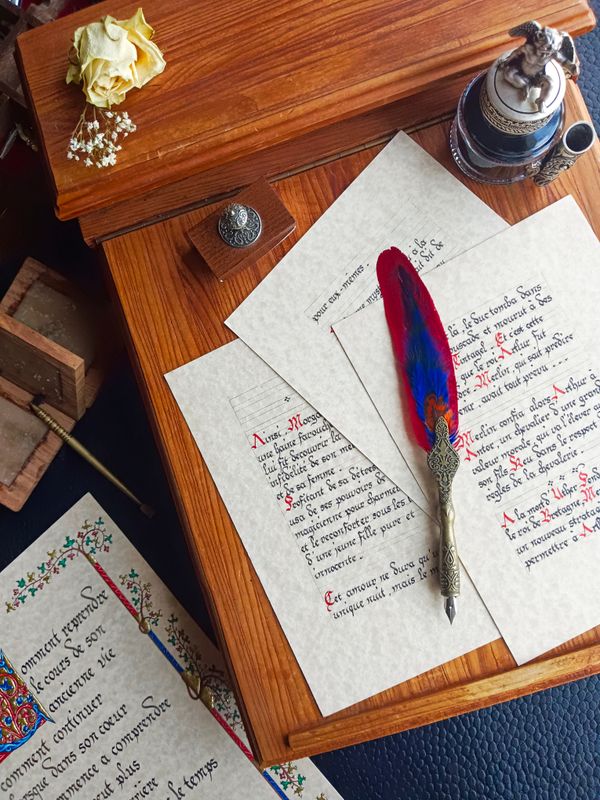 pour eux-mêmes.
à la
dit de
là, le duc tomba dans
uscade et mourut à des
Tintagel. Et c'est cette
que le roi Arthur fut
Merlin, qui sait prédire
avait tout prévu ...
Merlin confia alors Arthur à
Antor, un chevalier d'une grand
valeur morale, qui va l'élever a
son fils Keu dans le respect
règles de la chevalerie.
A la mort d'Uther Pend
le roi de Bretagne, M
un nouveau stratag
permettre à Ar
Ainsi, Morga
une haine farouch
lui fit découvrir la
infidélité de son
et de sa femme.
Profitant de sa détres
usa de ses pouvoirs de
magicienne pour charmer
et le réconforter sous les
d'une jeune fille pure et
innocente.
Cet amour ne dura qu'u
unique nuit, mais le m
omment reprendre
le cours de son
ancienne vie
comment continuer
orsque dans son coeur
ommence a comprendre
peut plus
rière
le temps